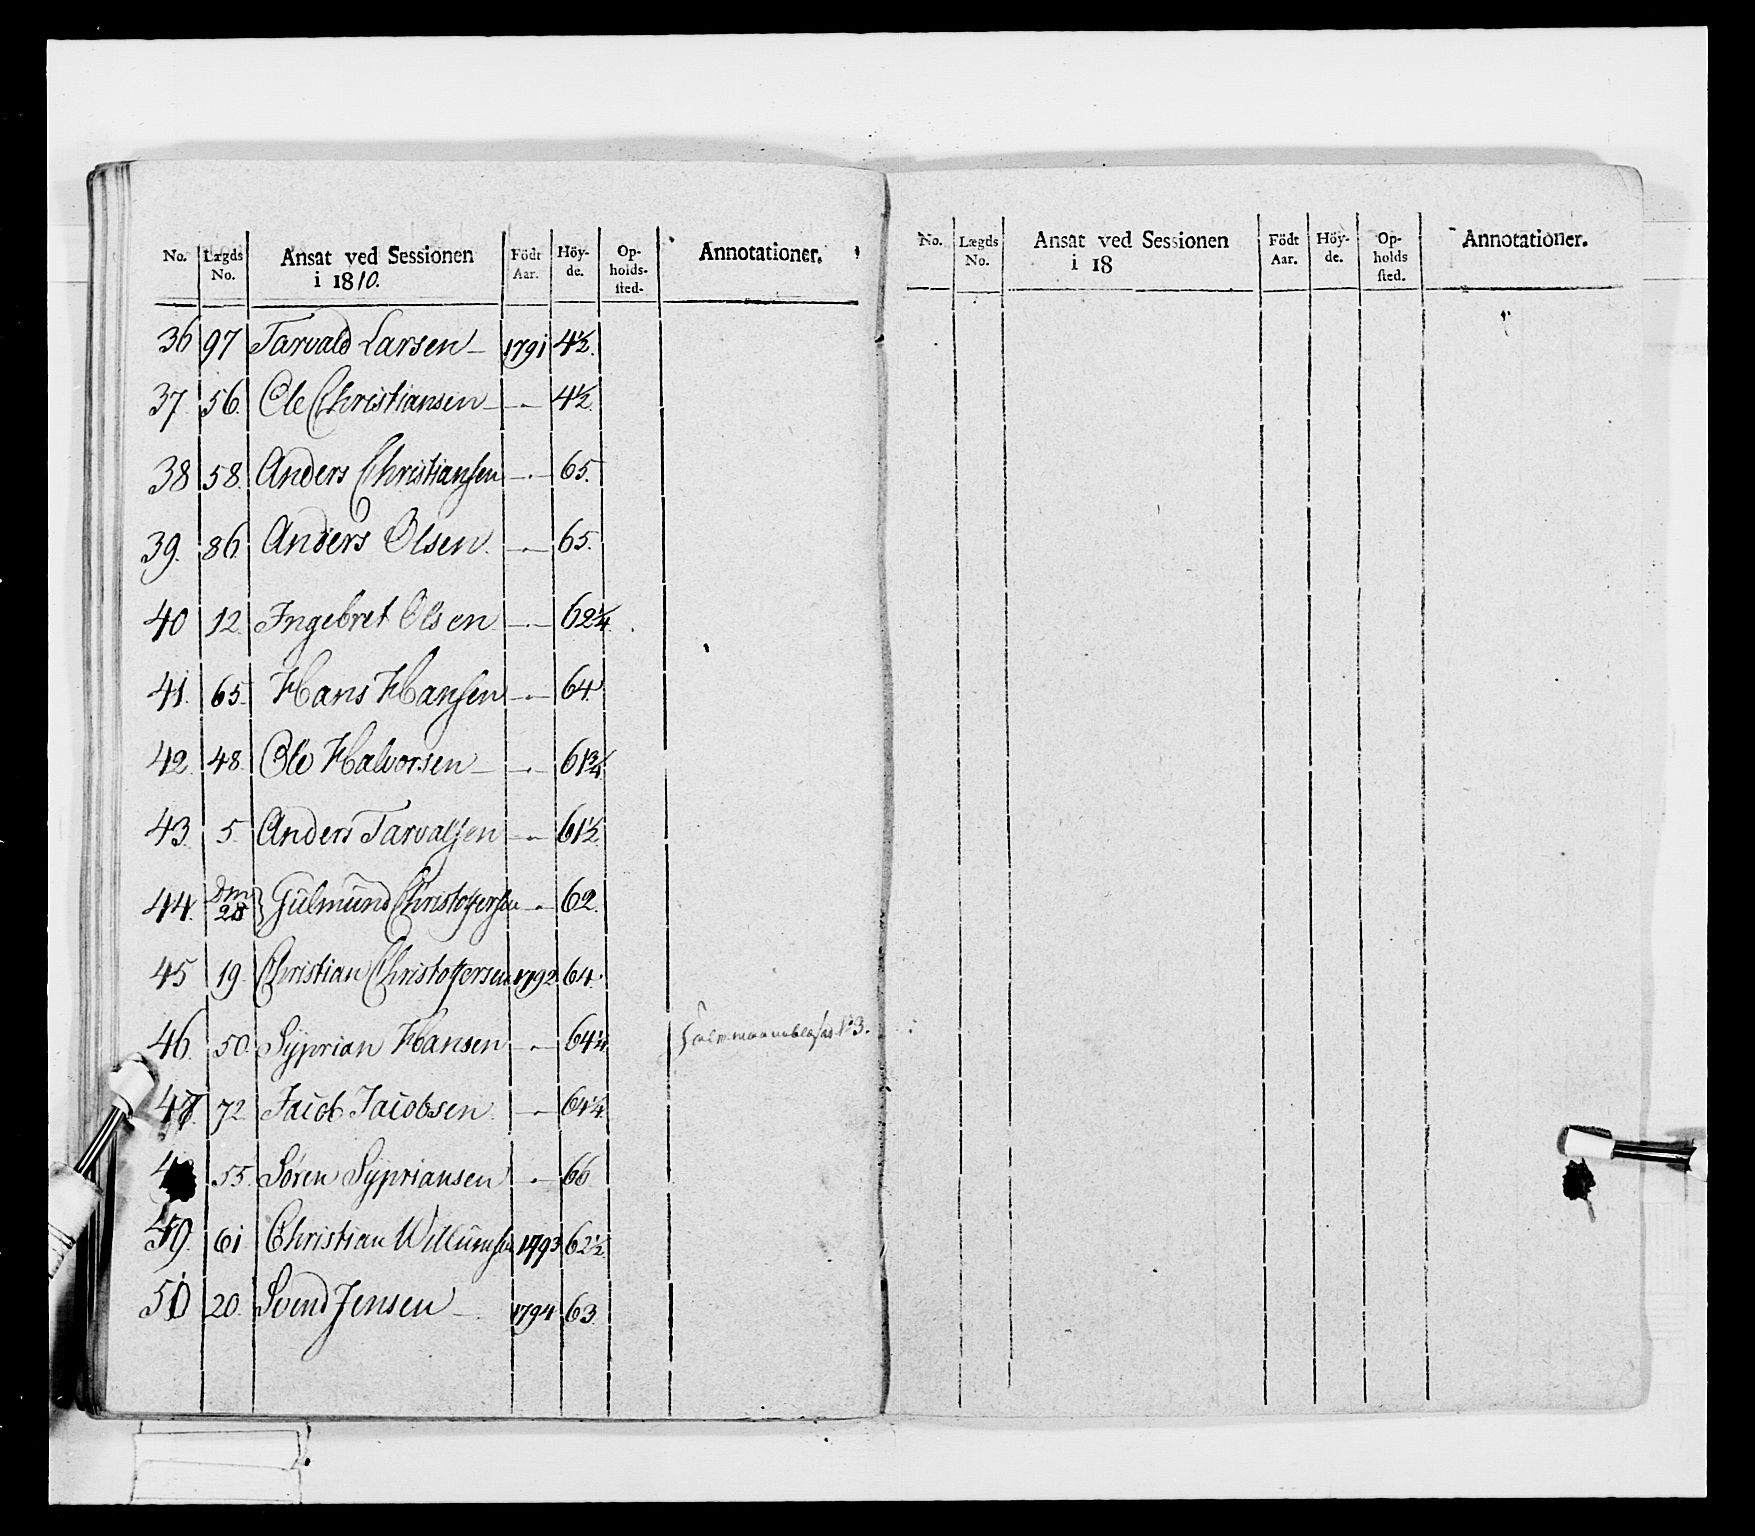 No. Lægds No. Ansat ved Sessionen i 1810. Födt Aar. Höy- de. Op- holds- sted. Annotationer.
36 97 Tarvald Larsen 1791 4½.
37. 56. Ole Christiansen — " — 4½.
38 58. Anders Christiansen — " — 65.
39. 86 Anders Olsen. — " — 65.
40 12. Ingebret Olsen — " — 62¼.
41. 65. Hans Hansen — " — 64.
42. 48. Ole Halvorsen — " — 61¾
43. 5. Anders Tarvalsen — " — 61½.
44. Dm 28 } Gulmund Christoffersen — " — 62.
45 19. Christian Christoffersen 1792 64.
46. 50. Syprian Hansen — " — 64¼ No 3.
47. 72. Jacob Jacobsen — " — 64¼
4 55. Søren Sypriansen " — 66
49. 61 Christian Willumsen 1793 62½.
50 20. Svend Jensen 1794 63.
No. Lægds No. Ansat ved Sessionen i 18 Födt Aar. Höy- de. Op- holds sted. Annotationer.